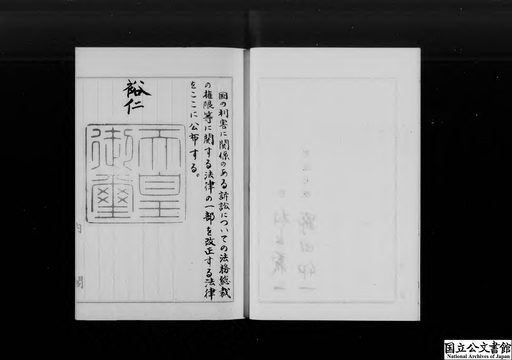 国の利害に関係のある訴訟についての法務総裁
の権限等に関する法律の一部を改正する法律
をここに公布する。
裕仁
天皇
御璽
内閣
国立公文書館
National Archives of Japan